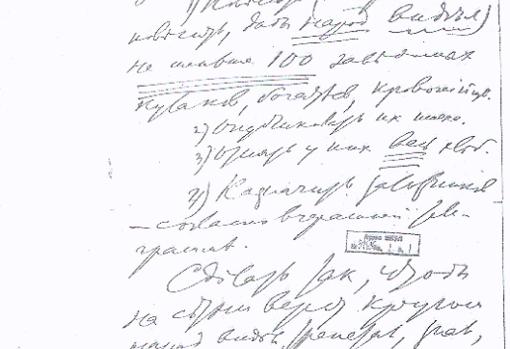 повесить, дабы народ видел)
не меньше 100 заведомых
кулаков, богатеев, кровопийц.
2) Опубликовать их имена.
3) Отнять у них весь хлеб.
4) Назначить заложников
— согласно вчерашней теле-
грамме.
Сделать так, чтобы
на сотни верст кругом
народ видел, трепетал, знал,